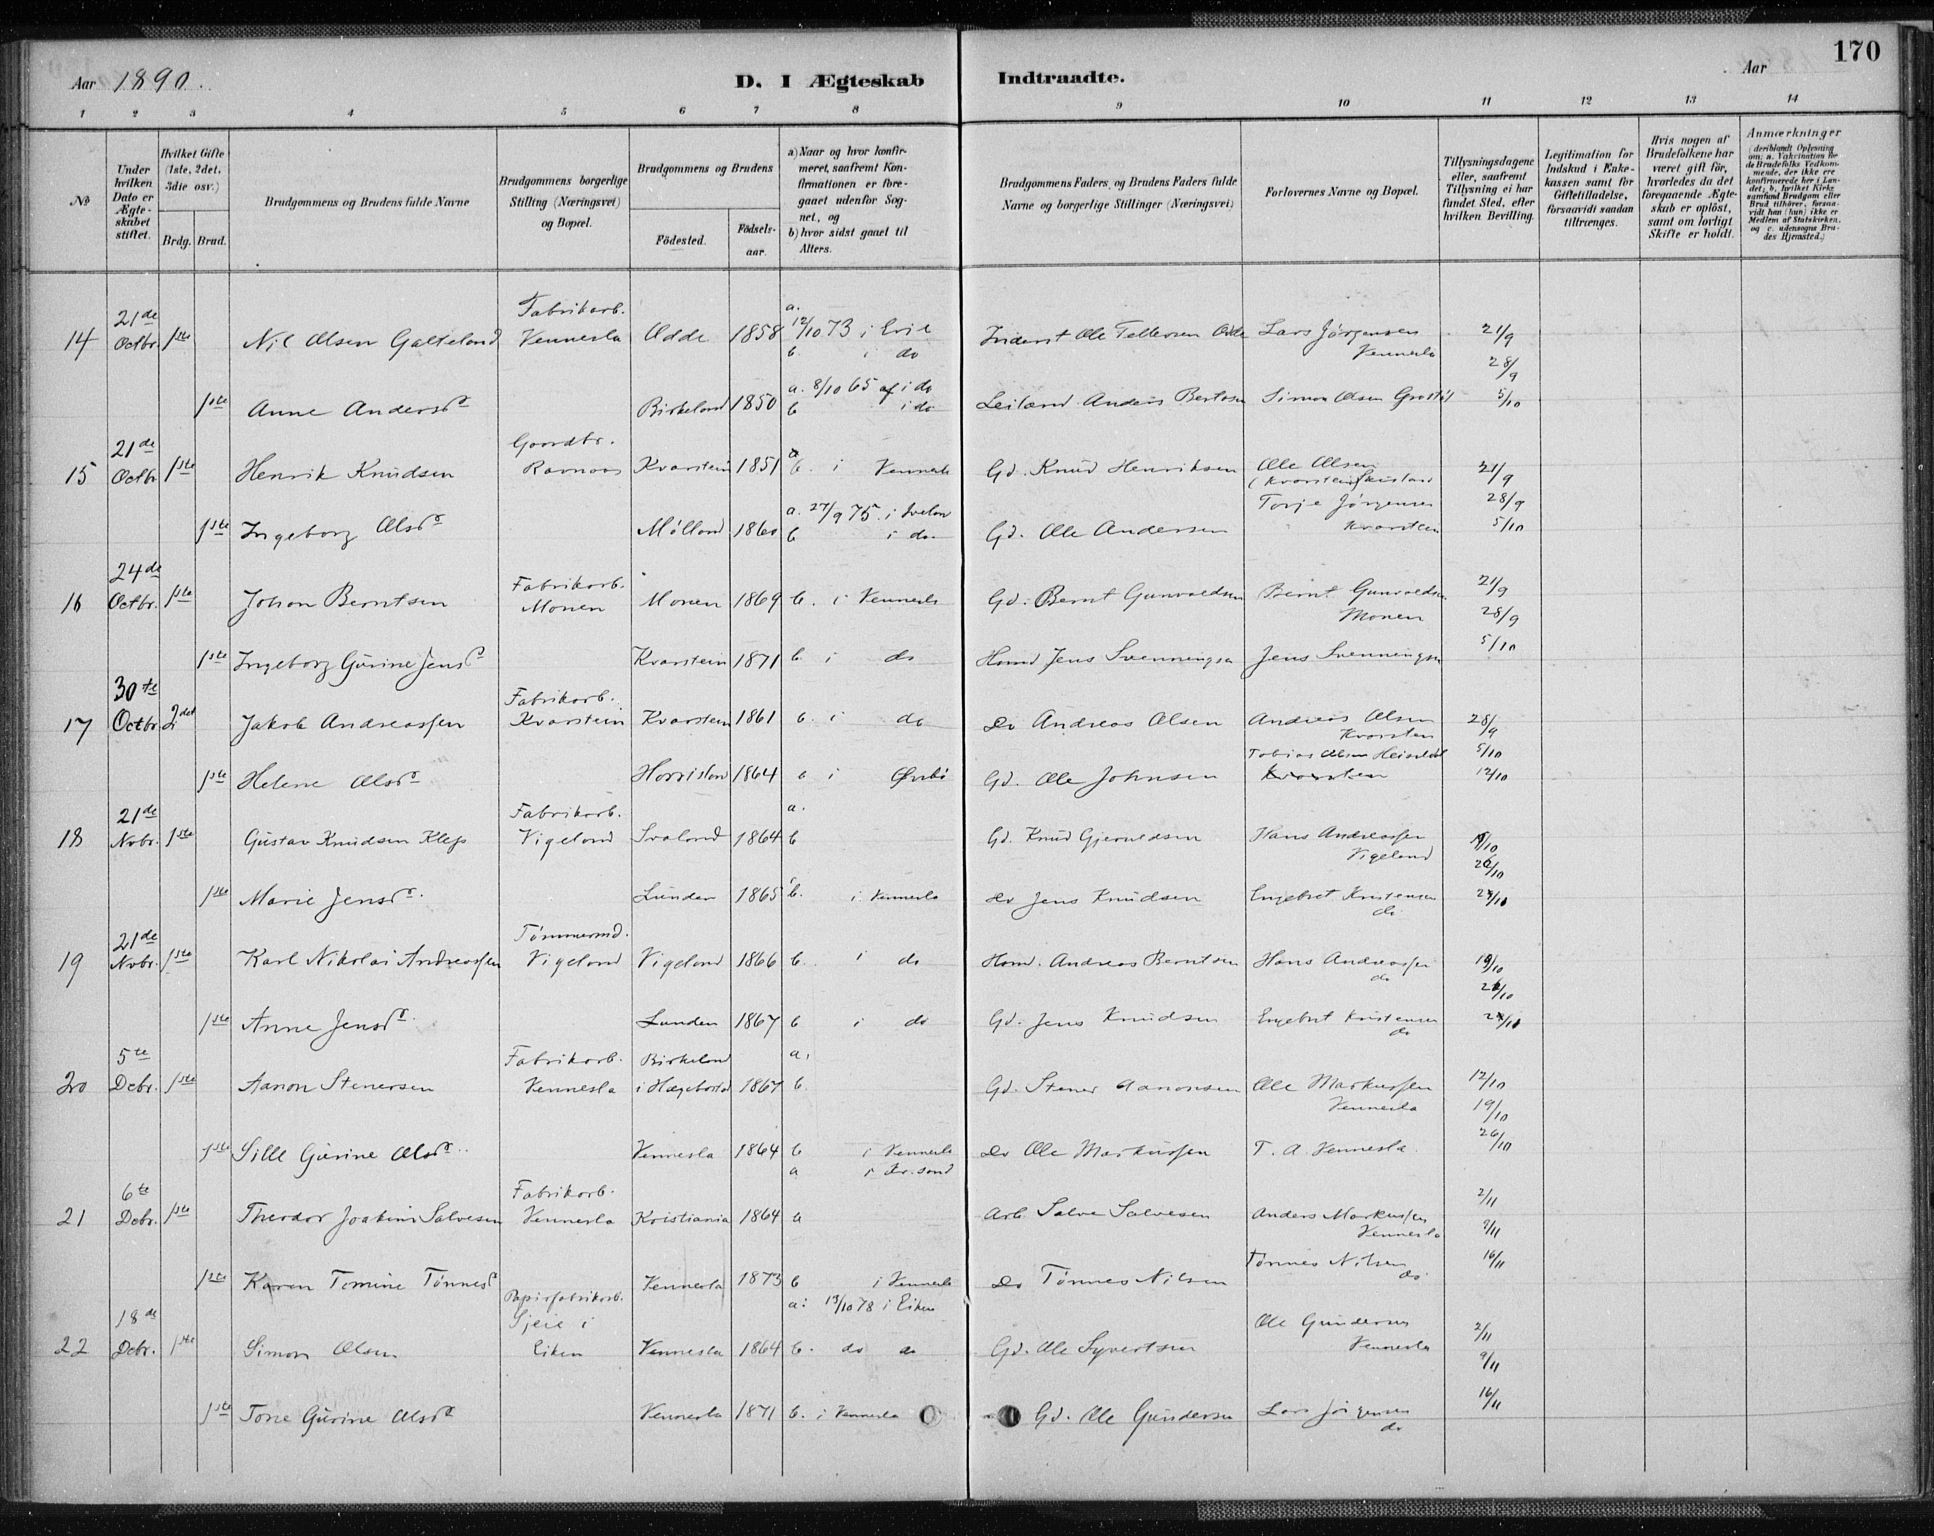 170
Aar 1890.
D. I Ægteskab Indtraadte.
Aar
1 2 3 4 5 6 7 8 9 10 11 12 13 14
No
Under hvilken Dato er Ægteskabet stiftet.
Hvilket Gifte (1ste, 2det, 3die osv.)
Brdg. Brud.
Brudgommens og Brudens fulde Navne
Brudgommens borgerlige Stilling (Næringsvei) og Bopæl.
Brudgommens og Brudens
Fødested. Fødselsaar.
a) Naar og hvor konfirmeret, saafremt Konfirmationen er foregaaet udenfor Sognet, og
b) hvor sidst gaaet til Alters.
Brudgommens Faders og Brudens Faders fulde Navne og borgerlige Stillinger (Næringsvei)
Forlovernes Navne og Bopæl.
Tillysningsdagene eller, saafremt Tillysning ei har fundet Sted, efter hvilken Bevilling.
Legitimation for Indskud i Enkekassen samt for Giftetilladelse, forsaavidt saadan tiltrænges.
Hvis nogen af Brudefolkene har været gift før, hvorledes da det foregaaende Ægteskab er opløst, samt om lovligt Skifte er holdt.
Anmærkninger (deriblandt Oplysning om: a. Vakcination for de Brudefolks Vedkommende, der ikke ere konfirmerede her i Landet; b. hvilket Kirkesamfund Brudgom eller Brud tilhører, forsaavidt han (hun) ikke er Medlem af Statskirken, og c. udensogns Brudes Hjemsted.)
21de Fabrikarb. a.
14 Octbr. 1ste Nil Olsen Galteland Vennesla Odde 1858 12/10 73 i Evje Inderst Ole Tellefsen Odde Lars Jørgensen 21/9
b. i do Vennesla 28/9
1ste Anne Andersdr Birkeland 1850 a. 8/10 65 i do Leilænd. Anders Bentsen Simon Olsen 5/10
b i do
21de Gaardbr. a
15 Octbr. 1ste Henrik Knudsen Ravnaas Kvarstein 1851 b. i Vennesla Gd. Knud Henriksen Ole Olsen 21/9
Torje Jørgensen 28/9
1ste Ingeborg Olsdr Mølland 1860 a. 27/9 75. i Iveland Gd. Ole Andersen Kvarsten 5/10
b i do
24de Fabrikarb.
16 Octbr. 1ste Johan Berntsen Monen Monen 1869 b. i Vennesla Gd. Bernt Gunvaldsen Bernt Gunvaldsen 21/9
Monen 28/9
1ste Ingeborg Gurine Jensdr Kvarstein 1871 b. i do Husmd Jens Svenningsen Jens Svenningsen 5/10
30te Fabrikarb.
17 Octbr. 2det Jakob Andreassen Kvarstein Kvarstein 1861 b. i do Do Andreas Olsen Andreas Olsen 28/9
Kvarsten
Tobias Olsen 5/10
1ste Helene Olsdr 1864 b i Øvrebø Gd. Ole Johnsen Kvarsten 12/10
21de Fabrikarb. a.
18 Nvbr. 1ste Gustav Knudsen Kleps Vigeland Svaland 1864 b Gd. Knud Gjeruldsen Hans Andreassen 19/10
Vigeland 26/10
1ste Marie Jensdr Lunden 1865 b. i Vennesla Do Jens Knudsen Engebret Kristensen 2/11
do
21de Tømmermd.
19 Nvbr. 1ste Karl Nikolai Andreassen Vigeland Vigeland 1866 b. i do Husmd. Andreas Berntsen Hans Andreassen 19/10
do 26/10
1ste Anne Jensdr Lunden 1867 b i do Gd. Jens Knudsen Engebret Kristensen 2/11
do
5te Fabrikarb. Birkeland a.
20 Debr. 1ste Aanon Stenersen Vennesla i Hægebostad 1867 b. Gd. Stener Aanonsen Ole Markussen 12/10
Vennesla 19/10
1ste Sille Gurine Olsdr Vennesla 1864 b i Vennesla Do Ole Markussen T. A. Vennesla. 26/10
a i Kr.sand
6te Fabrikarb.
21 Debr. 1ste Theodor Joakim Salvesen Vennesla Kristiania 1864 a Arb. Salve Salvesen Anders Markussen 2/11
Vennesla 9/11
1ste Karen Tomine Tønnesdr Vennesla 1873 b i Vennesla Do Tønnes Nilsen Tønnes Nilsen do 16/11
18de Papirfabrikarb. a: 13/10 78 i Eiken
Gjeie i Ole Gundersen
22 Debr. 1ste Simon Olsen Eiken Vennesla 1864 b. do do Gd. Ole Syvertsen Vennesla 2/11
9/11
1ste Tone Gurine Olsdr Vennesla 1871 b. i Vennesla Gd. Ole Gundersen Lars Jørgensen 16/11
do